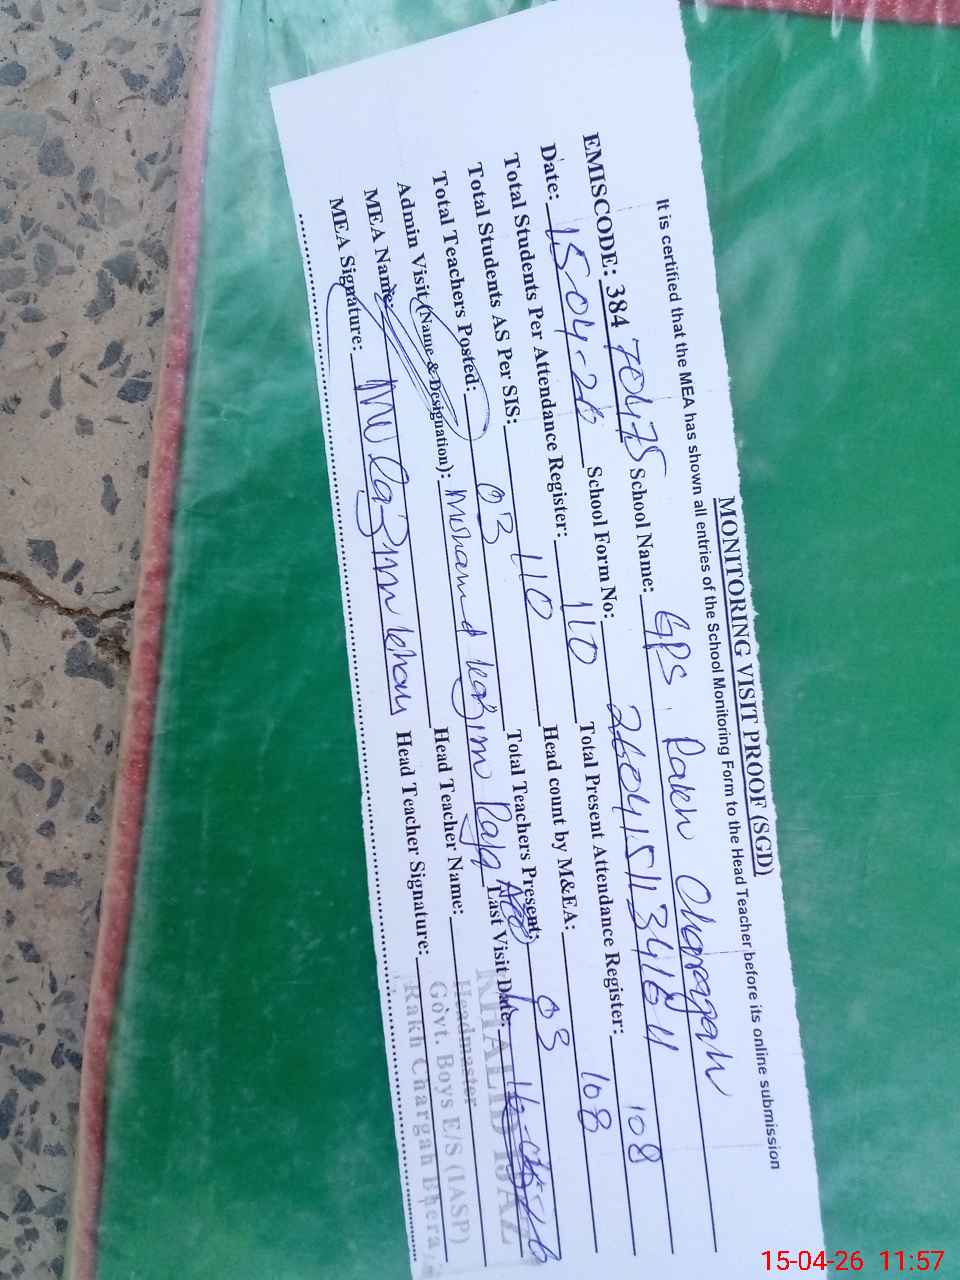 MONITORING VISIT PROOF (SGD)
It is certified that the MEA has shown all entries of the School Monitoring Form to the Head Teacher before its online submission
EMISCODE: 384 70475 School Name: GPS Rakh Charagah
Date: 15-04-26 School Form No: 260415113461611
Total Students Per Attendance Register: 110 Total Present Attendance Register: 108
Total Students AS Per SIS: 110 Head count by M&EA: 108
Total Teachers Posted: 03 Total Teachers Present: 03
Admin Visit (Name & Designation): Last Visit Date:
MEA Name: Head Teacher Name:
MEA Signature: Head Teacher Signature:
KHALID IJAZ
Headmaster
Govt. Boys E/S (IASP)
Rakh Chargah Bhera
15-04-26 11:57